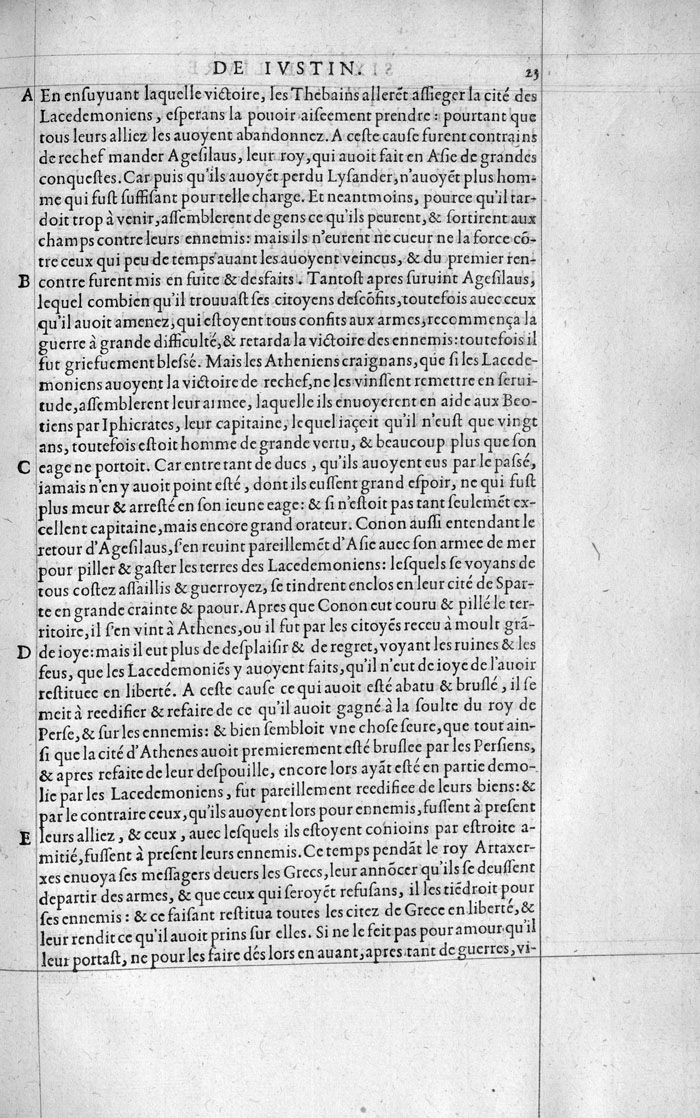 DE IVSTIN. 23
A En ensuyuant laquelle victoire, les Thebains allerẽt assieger la cité des
Lacedemoniens, esperans la pouoir aiseement prendre: pourtant que
tous leurs alliez les auoyent abandonnez. A ceste cause furent contrains
de rechef mander Agesilaus, leur roy, qui auoit fait en Asie de grandes
conquestes. Car puis qu'ils auoyẽt perdu Lysander, n'auoyẽt plus hom-
me qui fust suffisant pour telle charge. Et neantmoins, pource qu'il tar-
doit trop à venir, assemblerent de gens ce qu'ils peurent, & sortirent aux
champs contre leurs ennemis: mais ils n'eurent ne cueur ne la force cõ-
tre ceux qui peu de temps auant les auoyent veincus, & du premier ren-
B contre furent mis en fuite & desfaits. Tantost apres suruint Agesilaus,
lequel combien qu'il trouuast ses citoyens descõfits, toutefois auec ceux
qu'il auoit amenez, qui estoyent tous confits aux armes, recommença la
guerre à grande difficulté, & retarda la victoire des ennemis: toutefois il
fut griefuement blessé. Mais les Atheniens craignans, que si les Lacede-
moniens auoyent la victoire de rechef, ne les vinssent remettre en serui-
tude, assemblerent leur armee, laquelle ils enuoyerent en aide aux Beo-
tiens par Iphicrates, leur capitaine, lequel iaçeit qu'il n'eust que vingt
ans, toutefois estoit homme de grande vertu, & beaucoup plus que son
C eage ne portoit. Car entre tant de ducs, qu'ils auoyent eus par le passé,
iamais n'en y auoit point esté, dont ils eussent grand espoir, ne qui fust
plus meur & arresté en son ieune eage: & si n'estoit pas tant seulemẽt ex-
cellent capitaine, mais encore grand orateur. Conon aussi entendant le
retour d'Agesilaus, s'en reuint pareillemẽt d'Asie auec son armee de mer
pour piller & gaster les terres des Lacedemoniens: lesquels se voyans de
tous costez assaillis & guerroyez, se tindrent enclos en leur cité de Spar-
te en grande crainte & paour. Apres que Conon eut couru & pillé le ter-
ritoire, il s'en vint à Athenes, ou il fut par les citoyẽs receu à moult grã-
D de ioye: mais il eut plus de desplaisir & de regret, voyant les ruines & les
feus, que les Lacedemoniẽs y auoyent faits, qu'il n'eut de ioye de l'auoir
restituee en liberté. A ceste cause ce qui auoit esté abatu & bruslé, il se
meit à reedifier & refaire de ce qu'il auoit gagné à la soulte du roy de
Perse, & sur les ennemis: & bien sembloit vne chose seure, que tout ain-
si que la cité d'Athenes auoit premierement esté bruslee par les Persiens,
& apres refaite de leur despouille, encore lors ayãt esté en partie demo-
lie par les Lacedemoniens, fut pareillement reedifice de leurs biens: &
par le contraire ceux, qu'ils auoyent lors pour ennemis, fussent à present
E leurs alliez, & ceux, auec lesquels ils estoyent conioins par estroite a-
mitié, fussent à present leurs ennemis. Ce temps pendãt le roy Artaxer-
xes enuoya ses messagers deuers les Grecs, leur annõcer qu'ils se deussent
departir des armes, & que ceux qui seroyẽt refusans, il les tiẽdroit pour
ses ennemis: & ce faisant restitua toutes les citez de Grece en liberté, &
leur rendit ce qu'il auoit prins sur elles. Si ne le feit pas pour amour qu'il
leur portast, ne pour les faire dés lors en auant, apres tant de guerres, vi-